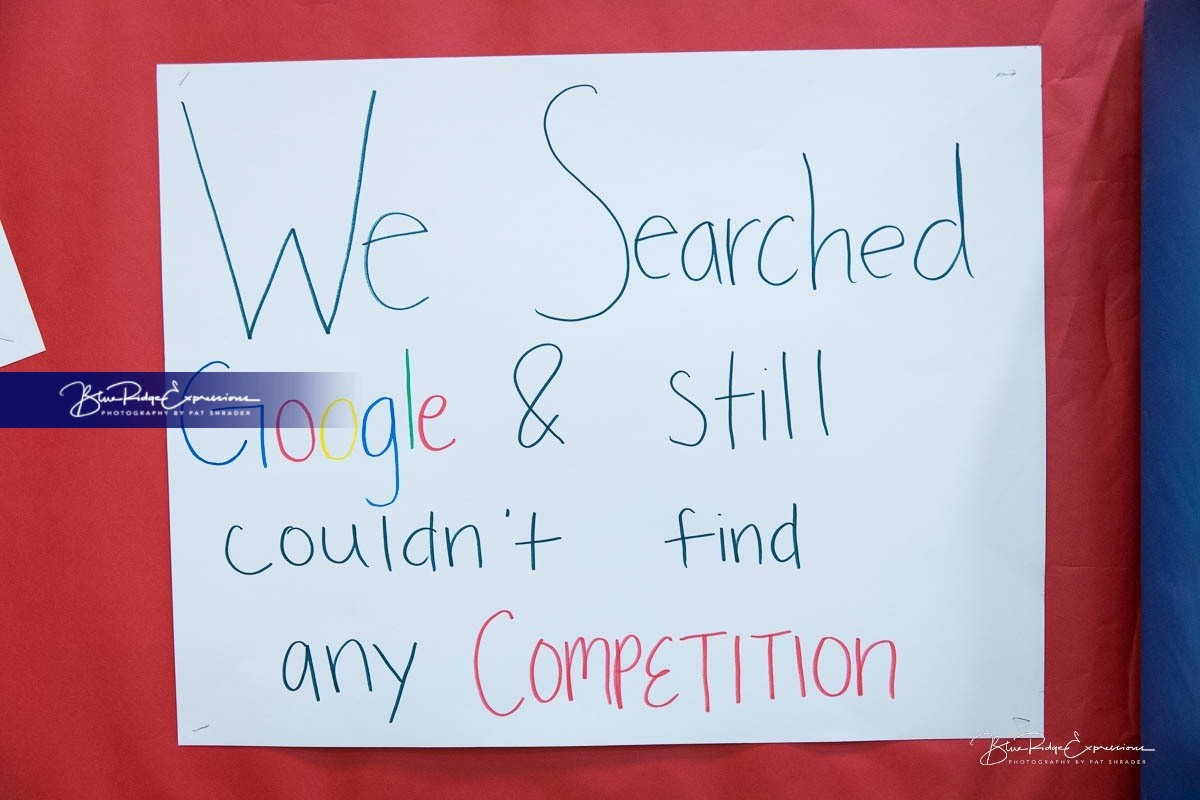 We Searched
Google & still
couldn't find
any COMPETITION
Blue Ridge Expressions
PHOTOGRAPHY BY PAT SHRADER
Blue Ridge Expressions
PHOTOGRAPHY BY PAT SHRADER